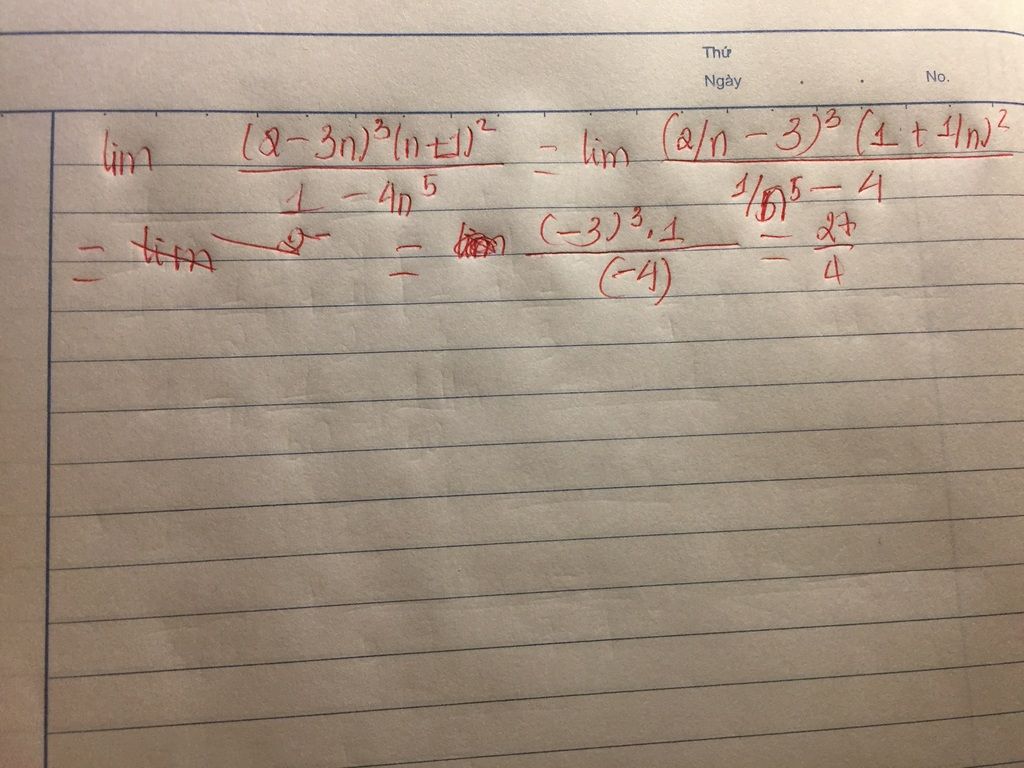 Thứ
Ngày . . No.
lim (2-3n)³(n+1)² / 1 - 4n⁵ = lim (2/n - 3)³ (1 + 1/n)² / 1/n⁵ - 4
= = (-3)³.1 / (-4) = 27/4